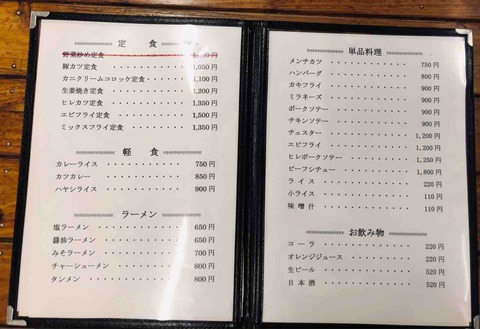 定 食
野菜炒め定食
豚カツ定食 1,050円
カニクリームコロッケ定食 1,100円
生姜焼き定食 1,200円
ヒレカツ定食 1,350円
エビフライ定食 1,500円
ミックスフライ定食 1,350円
軽 食
カレーライス 750円
カツカレー 850円
ハヤシライス 900円
ラーメン
塩ラーメン 650円
醤油ラーメン 650円
みそラーメン 700円
チャーシューメン 800円
タンメン 800円
単品料理
メンチカツ 750円
ハンバーグ 800円
カキフライ 900円
ミラネーズ 900円
ポークソテー 900円
チキンソテー 900円
チェスター 1,200円
エビフライ 1,200円
ヒレポークソテー 1,250円
ビーフシチュー 1,800円
ライス 220円
小ライス 110円
味噌汁 110円
お飲み物
コーラ 220円
オレンジジュース 220円
生ビール 520円
日本酒 520円